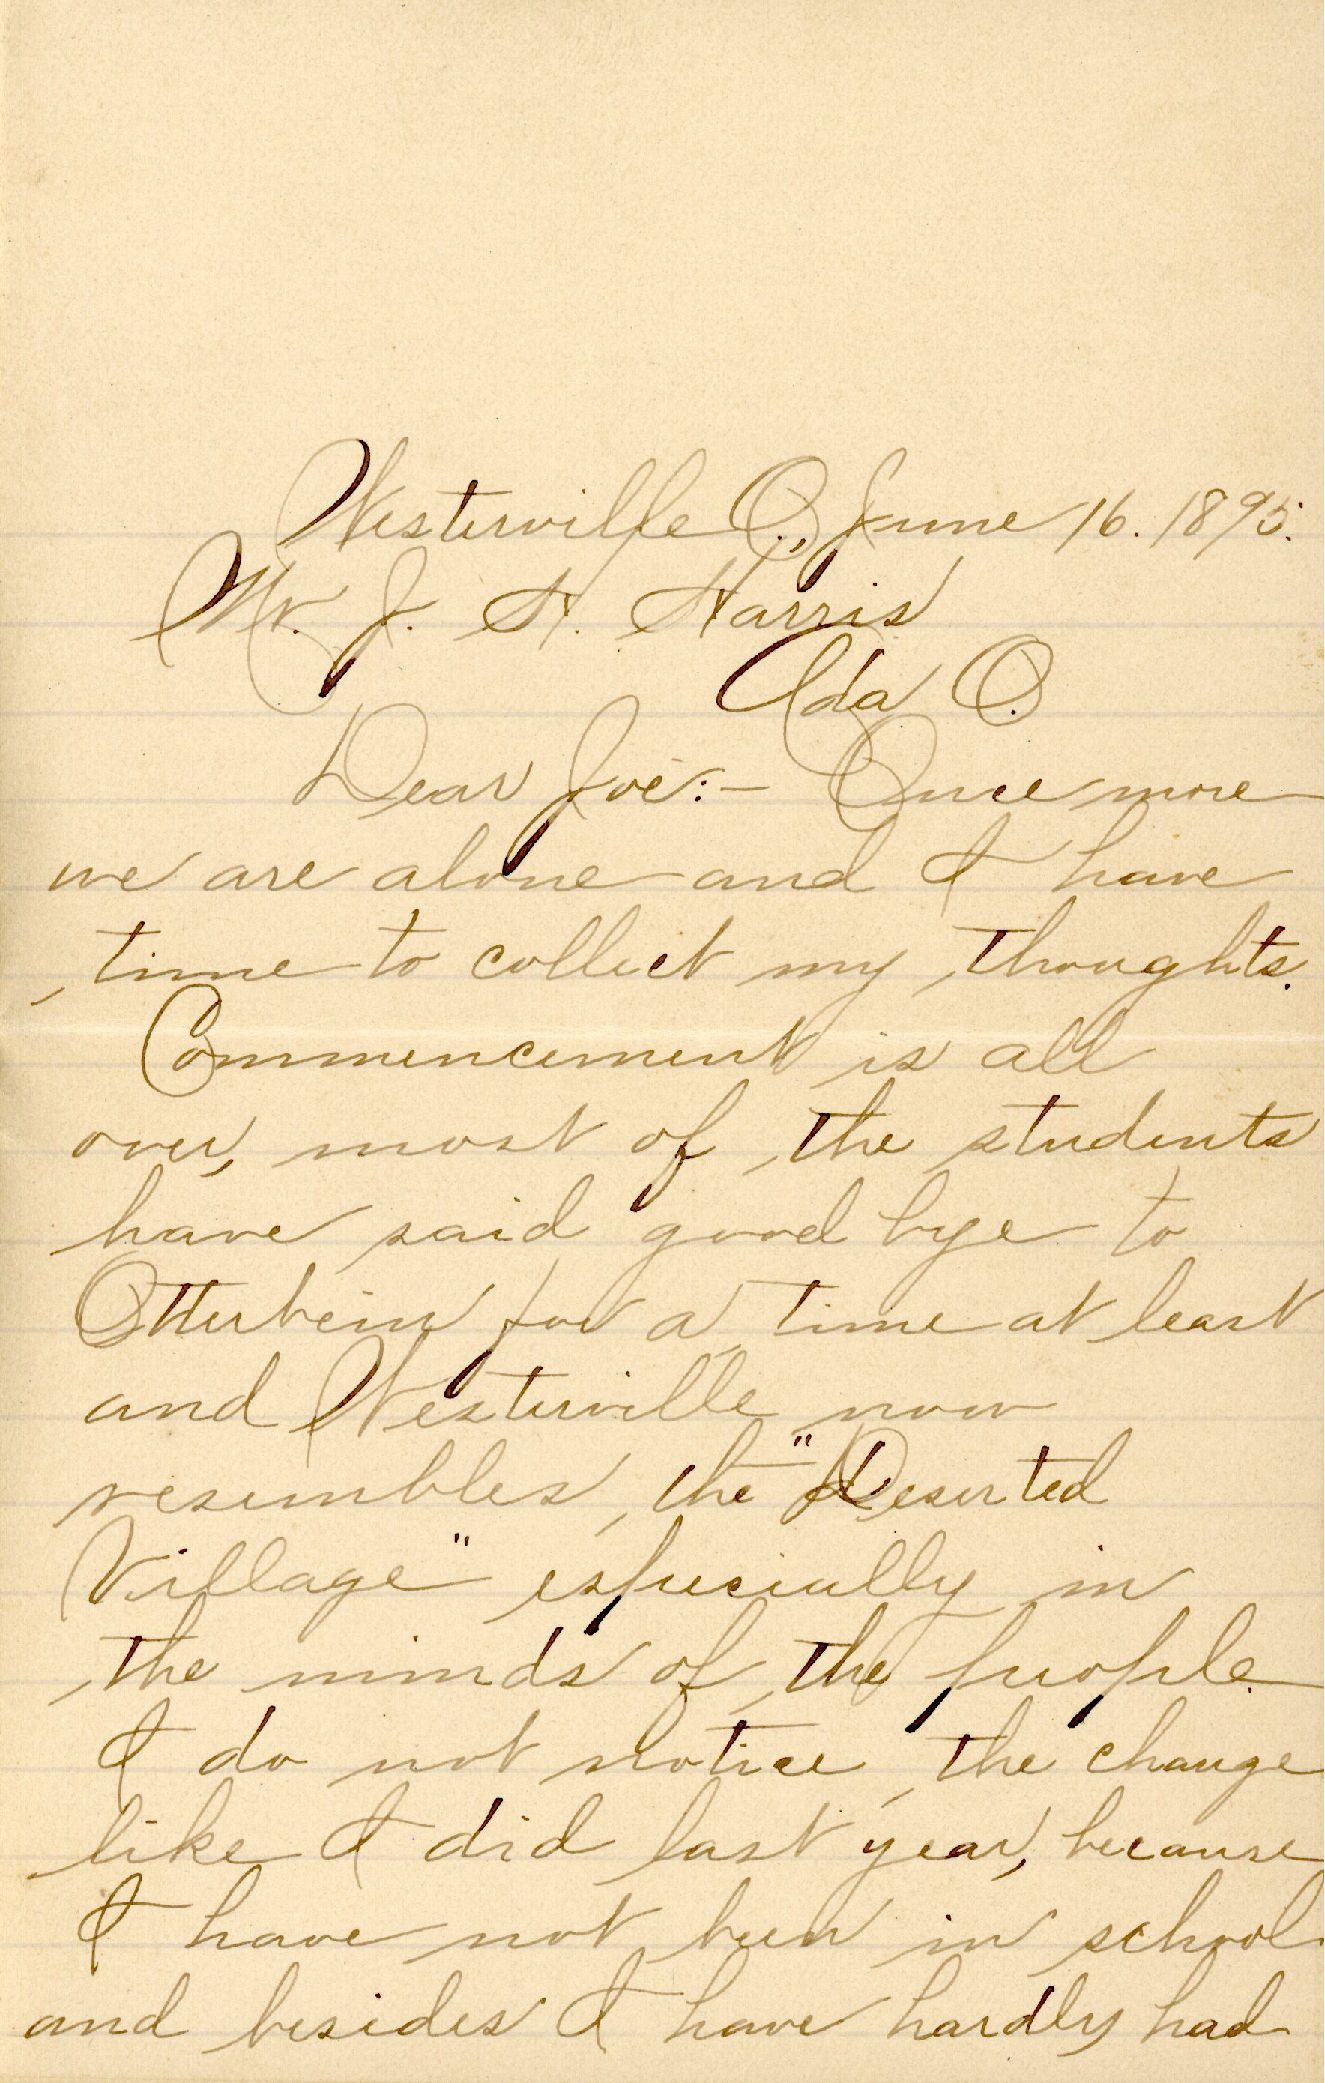 Westerville O., June 16. 1895.
Mr. J. H. Harris
Ada O.
Dear Joe:- Once more
we are alone and I have
time to collect my thoughts.
Commencement is all
over, most of the students
have said good bye to
Otterbein for a time at least
and Westerville now
resembles the "Deserted
Village" especially in
the minds of the people.
I do not notice the change
like I did last year, because
I have not been in school
and besides I have hardly had